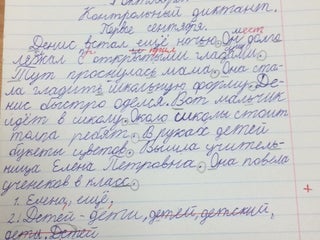 Контрольный диктант.
Первое сентября.
Денис встал ещё ночью. Он долго
лежал с открытыми глазами.
Тут проснулась мама. Она ста-
ла гладить школьную форму. Де-
нис быстро оделся. Вот мальчик
идёт в школу. Около школы стоит
толпа ребят. В руках детей
букеты цветов. Вышла учитель-
ница Елена Петровна. Она повела
учеников в класс.
1. Елена, ещё,
2. Детей - дети, детей, детский,
дети, Детей